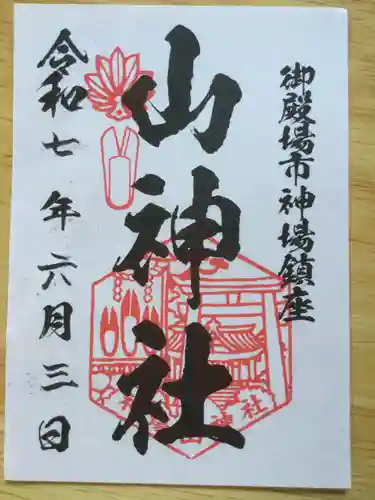 御殿場市神場鎮座
山神社
令和七年六月三日